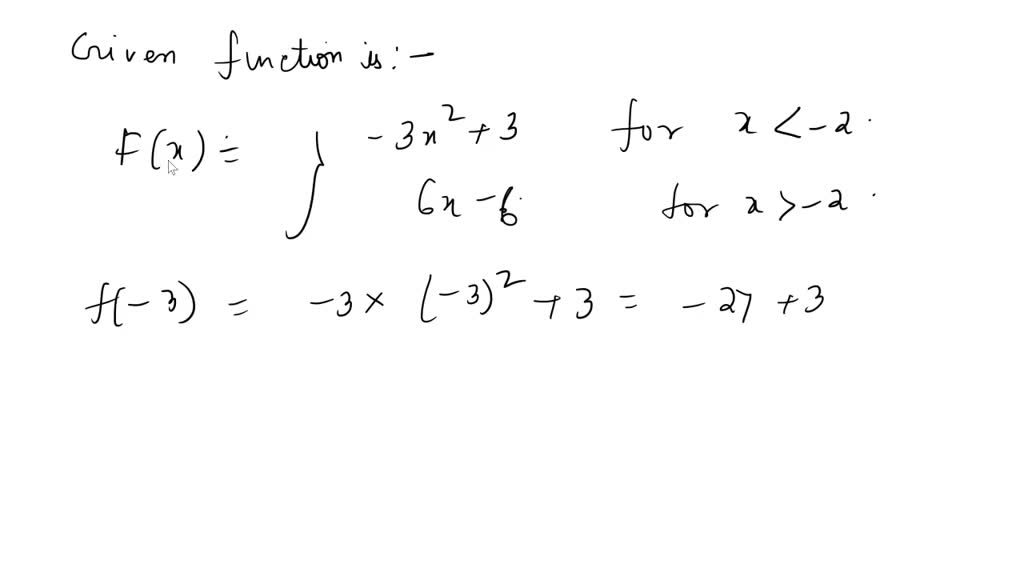 Given function is:-
F(x) = } -3x² + 3 for x < -2.
6x - 6 for x > -2.
f(-3) = -3 × (-3)² + 3 = -27 + 3